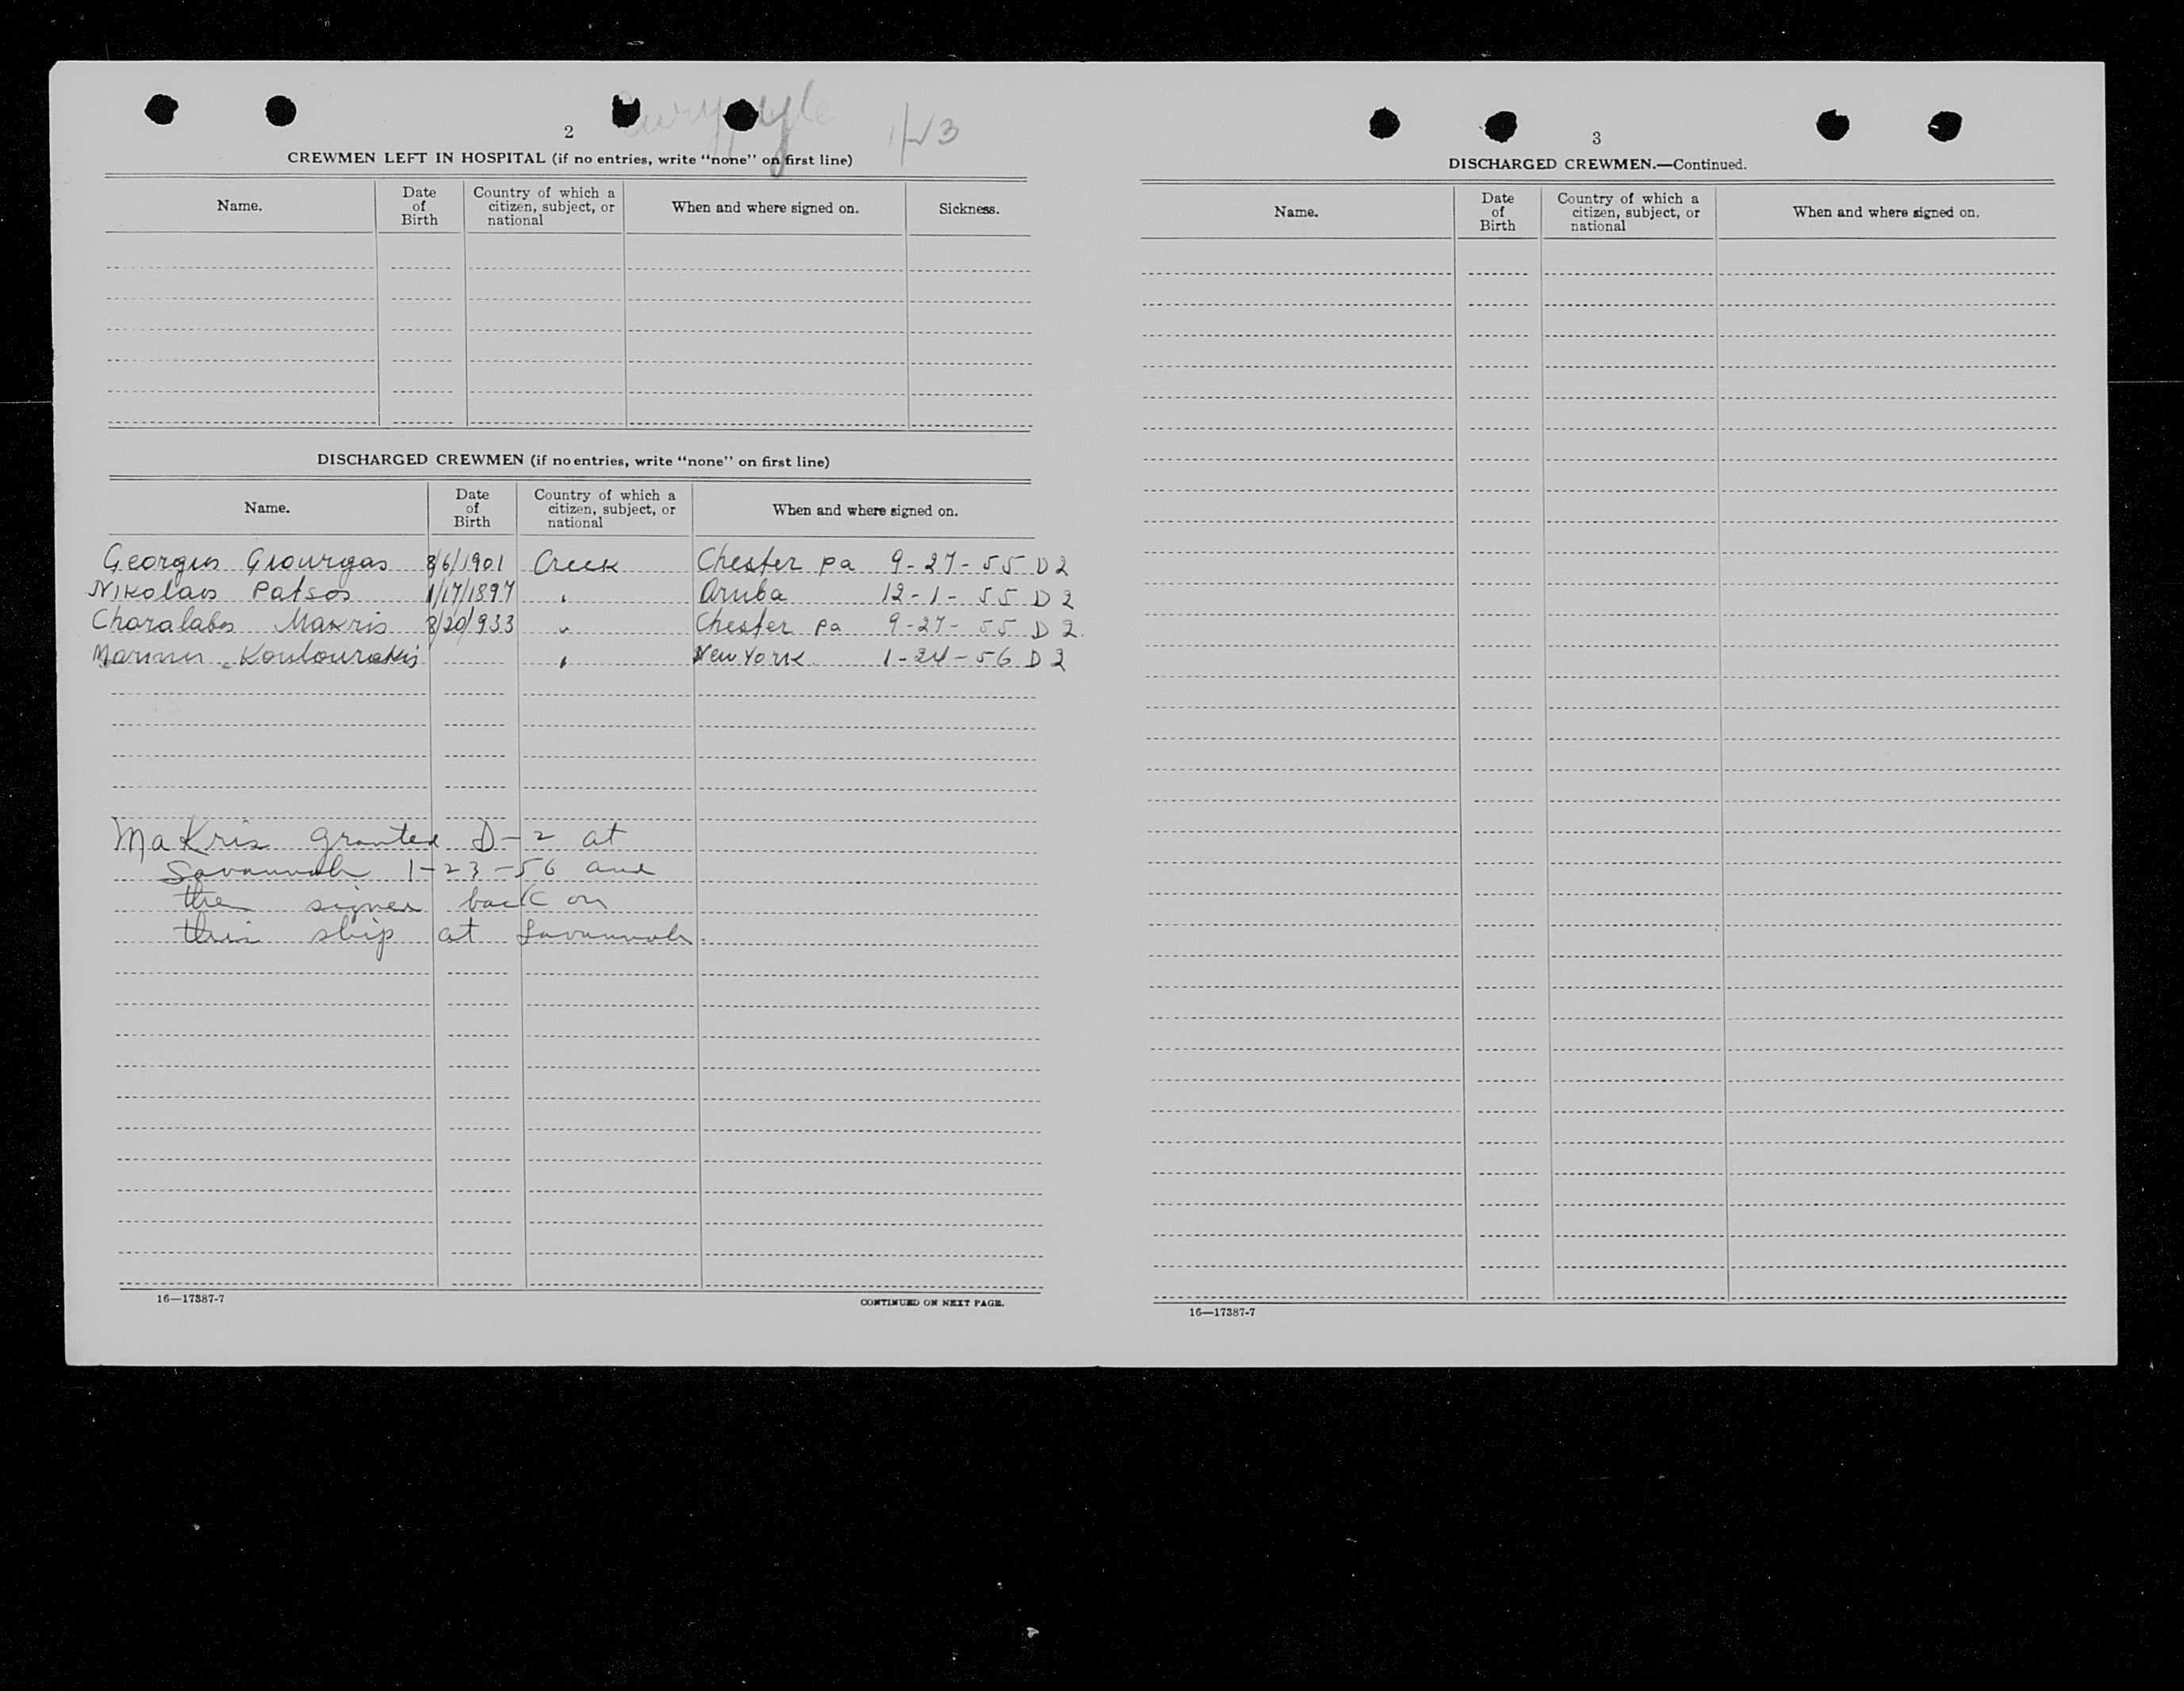 2
1/13
CREWMEN LEFT IN HOSPITAL (if no entries, write "none" on first line)
Name. Date of Birth Country of which a citizen, subject, or national When and where signed on. Sickness.
DISCHARGED CREWMEN (if no entries, write "none" on first line)
Name. Date of Birth Country of which a citizen, subject, or national When and where signed on.
Georgios Giourgas 8/6/1901 Greek Chester pa 9-27-55 D2
Nikolaos Patsos 1/17/1897 " Aruba 12-1-55 D2
Charalabos Makris 8/20/933 " Chester pa 9-27-55 D2.
Koulourakis " New York 1-24-56 D2
Makris granted D-2 at
Savannah 1-23-56 and
then signed back on
this ship at Savannah.
16—17387-7
CONTINUED ON NEXT PAGE.
3
DISCHARGED CREWMEN.—Continued.
Name. Date of Birth Country of which a citizen, subject, or national When and where signed on.
16—17387-7